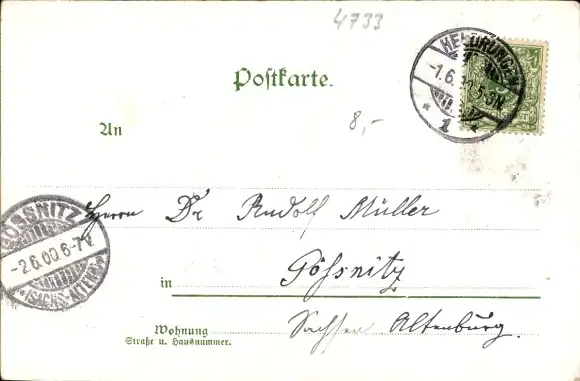 4733
HELDRUNGEN
-1.6.00.5-6N.
* 1 *
Postkarte.
8,-
An
Herrn Dr Rudolf Müller
GÖSSNITZ
-2.6.00.6-7V.
*(SACHS.-ALTENB.)*
in Gössnitz
Sachsen Altenburg.
Wohnung
Straße u. Hausnummer.